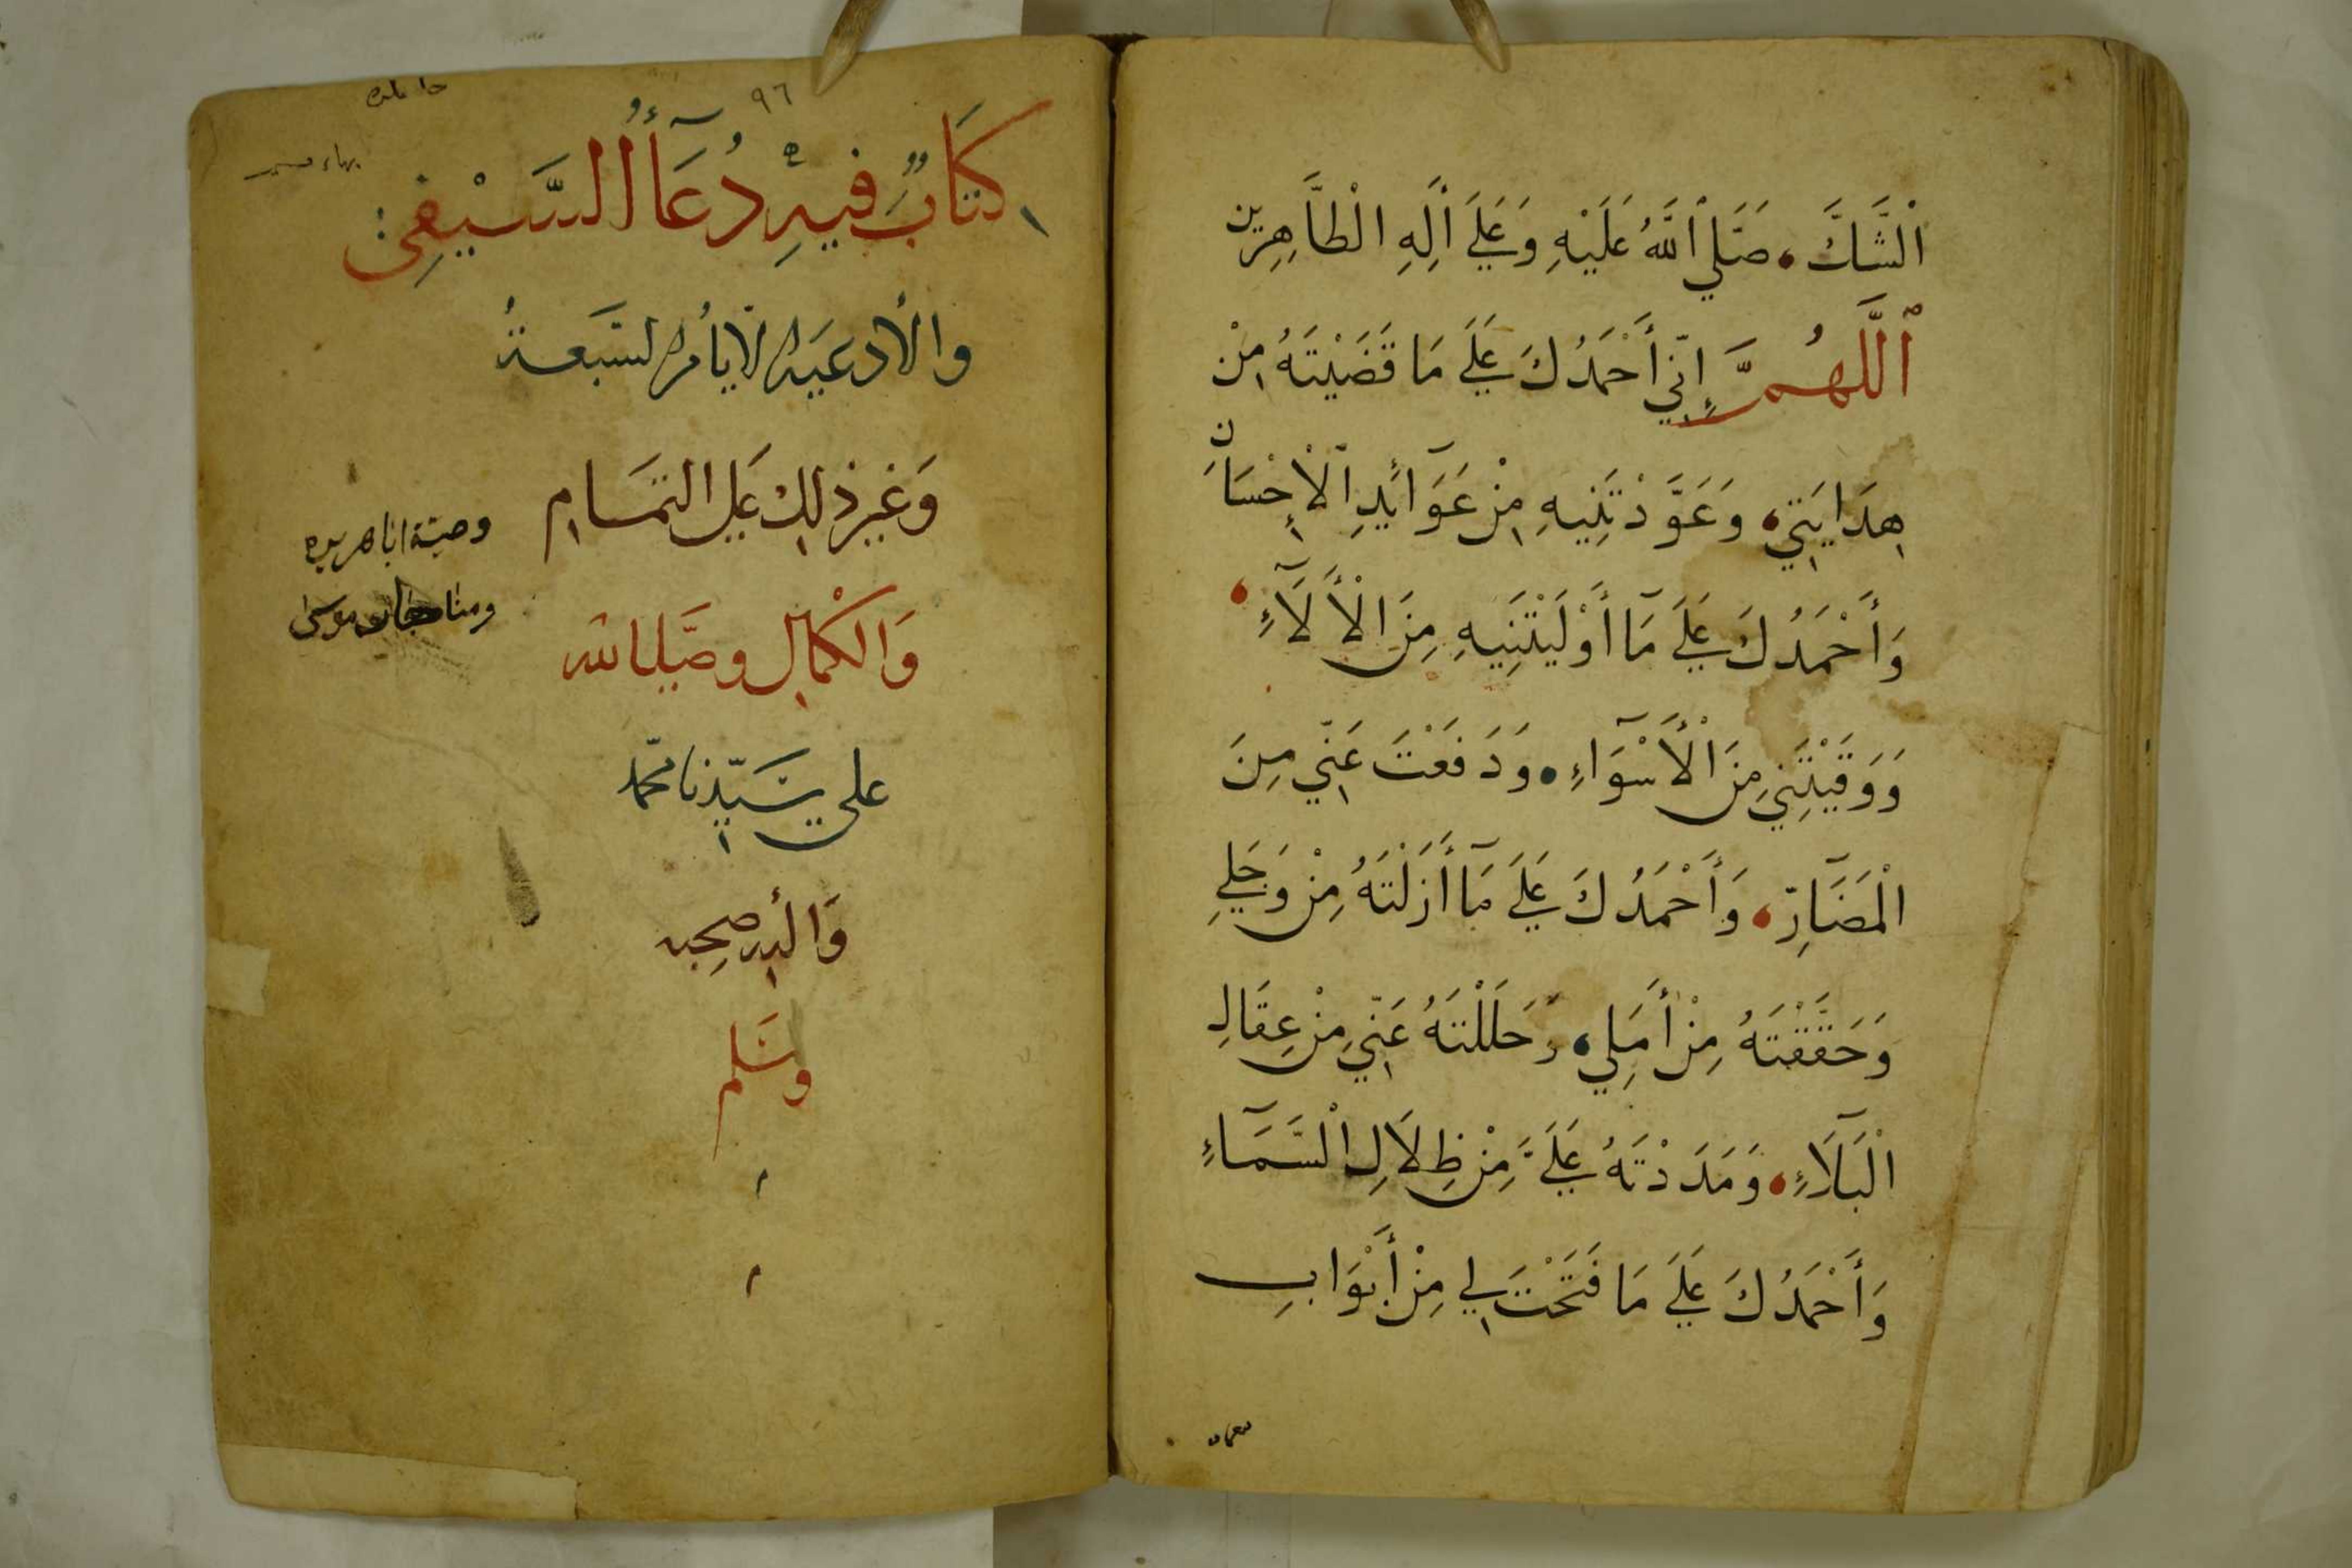 الْشَّكَّ، صَلَّي اللهُ عَلَيْهِ وَعَلَي أَلِهِ الْطَّاهِرِين
اَللَّهُمَّ إِنِّي أَحْمَدُكَ عَلَي مَا قَضَيْتَهُ مِنْ
هِدَايَتِي، وَعَوَّدْتَنِيهِ مِنْ عَوَآئِدِ الْاِحْسَانِ
وَأَحْمَدُكَ عَلَي مَآ أَوْلَيْتَنِيهِ مِنَ الْأَلَآءِ،
وَوَقَيْتَنِي مِنَ الْأَسْوَآءِ، وَدَفَعْتَ عَنِّي مِنَ
الْمَضَآرِّ، وَأَحْمَدُكَ عَلَي مَآ أَزَلْتَهُ مِنْ وَجَلِي
وَحَقَّقْتَهُ مِنْ أَمَلِي، وَحَلَلْتَهُ عَنِّي مِنْ عِقَالِ
الْبَلَآءِ، وَمَدَدْتَهُ عَلَيَّ مِنْ ظِلَالِ الْسَّمَآءِ
وَأَحْمَدُكَ عَلَي مَا فَتَحْتَ لِي مِنْ أَبْوَابِ
٩٦
كتَابٌ فيهِ دُعَآأُ السَّيْفِي
والأدعية الايام السَبعة
وَغير ذلك علي التمَام
وَالكمالِ وصَلي الله
على سَيّدنا محمّد
وَاله وصحبه
وسَلم
وصية ابا هريره
ومناجات موسى